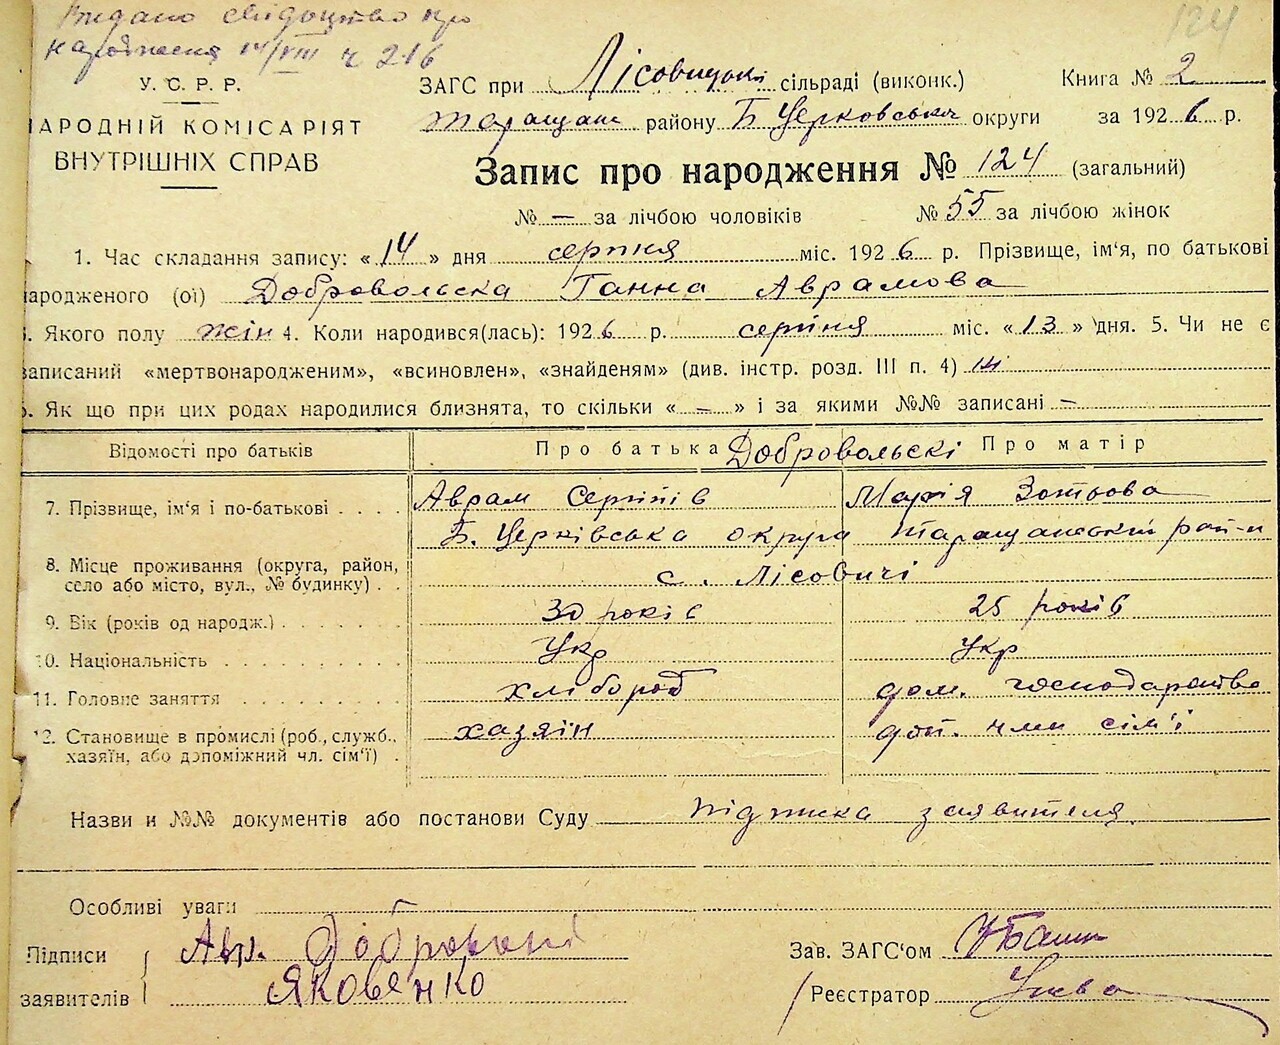 Видано свідоцтво про
народження 14/VIII ч 216
124
У.С.Р.Р.
НАРОДНІЙ КОМІСАРІЯТ
ВНУТРІШНІХ СПРАВ
ЗАГС при Лісовицькі сільраді (виконк.) Книга № 2
Таращан району Б Церковської округи за 1926 р.
Запис про народження № 124 (загальний)
№ — за лічбою чоловіків № 55 за лічбою жінок
1. Час складання запису: «14» дня серпня міс. 1926 р. Прізвище, ім'я, по батькові
народженого (ої) Добровольска Ганна Аврамова
3. Якого полу жін 4. Коли народився(лась): 1926 р. серпня міс. «13» дня. 5. Чи не є
записаний «мертвонародженим», «всиновлен», «знайденям» (див. інстр. розд. III п. 4)
6. Як що при цих родах народилися близнята, то скільки « — » і за якими №№ записані —
Відомості про батьків Про батька Добровольскі Про матір
7. Прізвище, ім'я і по-батькові . . . . Аврам Сергіїв Марія Зотьова
Б. Церківська округа Таращанський рай-н
8. Місце проживання (округа, район,
село або місто, вул., № будинку) . . с. Лісовичі
9. Вік (років од народж.) . . . . . . . 30 років 25 років
10. Національність . . . . . . . . . . Укр Укр
11. Головне заняття . . . . . . . . . хлібороб дом. господарство
12. Становище в промислі (роб., служб.,
хазяїн, або допоміжний чл. сім'ї) . хазяїн доп. член сім'ї
Назви и №№ документів або постанови Суду підписка заявителя.
Особливі уваги
Підписи Авр. Зав. ЗАГС'ом
заявителів Яковенко Реєстратор